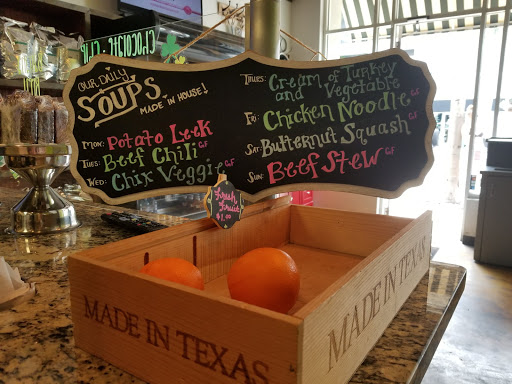 CHOCOLATE
CUP
OUR DAILY
SOUPS
MADE IN HOUSE!
MON: Potato Leek GF
TUES: Beef Chili GF
WED: Chix Veggie GF
THURS: Cream of Turkey
and Vegetable
FRI: Chicken Noodle
SAT: Butternut Squash GF
SUN: Beef Stew GF
Fresh
Fruit
MADE IN TEXAS
MADE IN TEXAS